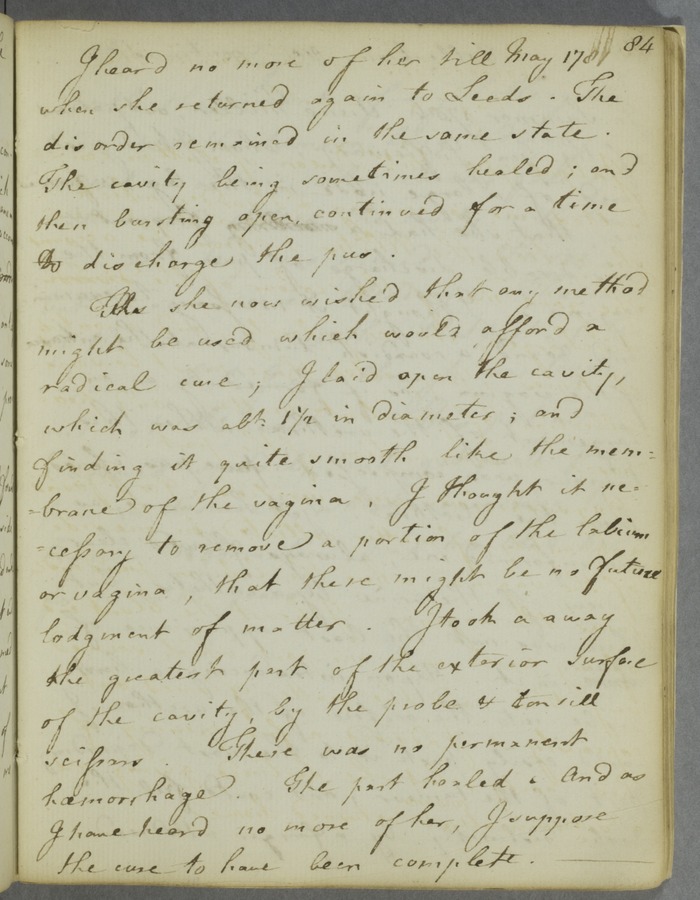 84
I heard no more of her till May 178
when she returned again to Leeds. The
disorder remained in the same state.
The cavity being sometimes healed; and
then bursting open, continued for a time
to discharge the pus.
As she now wished that any method
might be used which would afford a
radical cure; I laid open the cavity,
which was abt. 1½ in diameter; and
finding it quite smooth like the mem=
=brane of the vagina, I thought it ne=
=cessary to remove a portion of the labium
or vagina, that there might be no future
lodgment of matter. I took a away
the greatest part of the exterior surface
of the cavity, by the probe & tonsill
scissars. There was no permanent
hæmorrhage. The part healed. And as
I have heard no more of her, I suppose
the cure to have been complete.